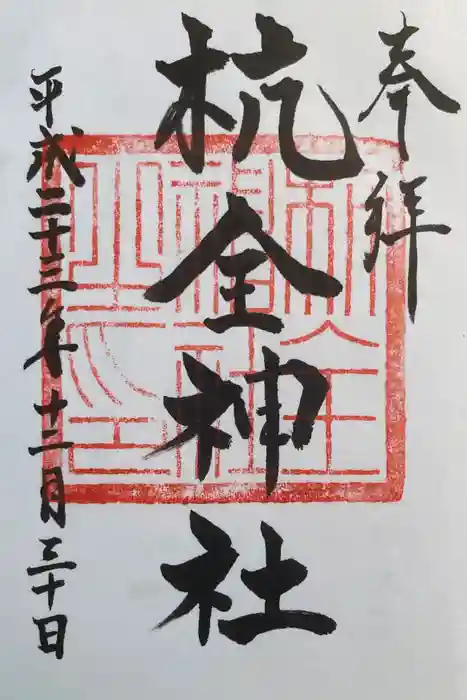 奉拝
杭全神社
平成二十三年十二月三十日